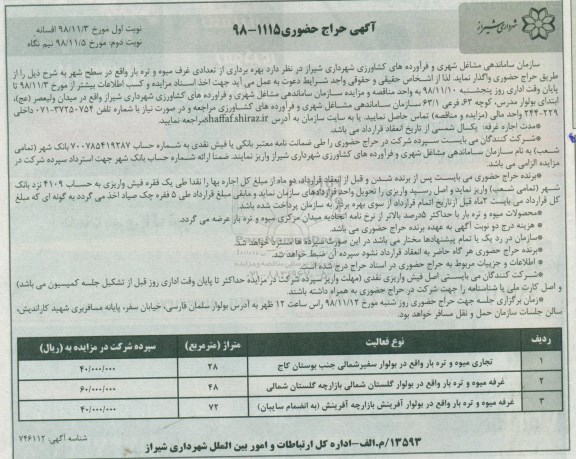 شهرداری شیراز
آگهی حراج حضوری ۱۱۱۵-۹۸
نوبت اول مورخ ۹۸/۱۱/۳ افسانه
نوبت دوم: مورخ ۹۸/۱۱/۵ نیم نگاه
سازمان ساماندهی مشاغل شهری و فرآورده های کشاورزی شهرداری شیراز در نظر دارد بهره برداری از تعدادی غرف میوه و تره بار واقع در سطح شهر به شرح ذیل را از
طریق حراج حضوری واگذار نماید. لذا از اشخاص حقیقی و حقوقی واجد شرایط دعوت به عمل می آید جهت اخذ اسناد مزایده و کسب اطلاعات بیشتر از مورخ ۹۸/۱۱/۳ تا
پایان وقت اداری روز پنجشنبه ۹۸/۱۱/۱۰ به واحد مناقصه و مزایده سازمان ساماندهی مشاغل شهری و فرآورده های کشاورزی شهرداری شیراز واقع در میدان ولیعصر (عج)،
ابتدای بولوار مدرس، کوچه ۶۳ فرعی ۶۳/۱ سازمان ساماندهی مشاغل شهری و فرآورده های کشاورزی مراجعه و در صورت نیاز با شماره تلفن ۳۷۲۵۰۷۵۴-۰۷۱ داخلی
۲۲۹-۲۴۴ واحد (مزایده و مناقصه) تماس حاصل نمایید. یا به سایت سازمان به آدرس shaffaf.shiraz.ir مراجعه نمایید.
*مدت اجاره غرفه: یکسال شمسی از تاریخ انعقاد قرارداد می باشد.
*شرکت کنندگان می بایست سپرده شرکت در حراج حضوری را طی ضمانت نامه معتبر بانکی یا فیش نقدی به شماره حساب ۷۰۰۷۸۵۴۱۹۲۸۷ بانک شهر (تمامی
شعب) به نام سازمان ساماندهی مشاغل شهری و فرآورده های کشاورزی شهرداری شیراز واریز نمایند. ضمنا ارائه شماره حساب بانک شهر جهت استرداد سپرده شرکت در
مزایده الزامی می باشد.
*برنده حراج حضوری می بایست پس از برنده شدن و قبل از انعقاد قرارداد، دو ماه از مبلغ کل اجاره بها را نقدا طی یک فقره فیش واریزی به حساب ۴۱۰۹ نزد بانک
شهر (تمامی شعب) واریز نماید و اصل رسید واریزی را تحویل واحد قراردادهای سازمان نماید و مابقی مبلغ قرارداد طی ۵ فقره چک صیاد اخذ می گردد به گونه ای که مبلغ
کل قرارداد می بایست ۲ماه قبل ازتاریخ اتمام قرارداد از سوی بهره بردار به سازمان پرداخت شده باشد.
*محصولات میوه و تره بار با حداکثر ۵درصد بالاتر از نرخ نامه اتحادیه میدان مرکزی میوه و تره بار عرضه می گردد.
* هزینه درج دو نوبت آگهی به عهده برنده حراج حضوری می باشد.
*سازمان در رد یک یا تمام پیشنهادها مختار می باشد در این صورت سپرده ها مسترد خواهد شد.
* برنده حراج حضوری هر گاه حاضر به انعقاد قرارداد نشود سپرده آن ضبط خواهد شد.
* اطلاعات و جزییات مربوط به حراج حضوری در اسناد حراج درج شده است.
*شرکت کنندگان می بایستی اصل فیش واریزی نقدی (مهلت واریز سپرده شرکت در مزایده حداکثر تا پایان وقت اداری روز قبل از تشکیل جلسه کمیسیون می باشد)
و اصل کارت ملی یا شناسنامه را جهت شرکت در حراج حضوری به همراه داشته باشند.
*زمان برگزاری جلسه جهت حراج حضوری روز شنبه مورخ ۹۸/۱۱/۱۲ راس ساعت ۱۲ ظهر به آدرس بولوار سلمان فارسی، خیابان سفر، پایانه مسافربری شهید کاراندیش،
سالن جلسات سازمان حمل و نقل مسافر خواهد بود.
ردیف نوع فعالیت متراژ (مترمربع) سپرده شرکت در مزایده به (ریال)
۱ تجاری میوه و تره بار واقع در بولوار سفیرشمالی جنب بوستان کاج ۲۸ ۴۰/۰۰۰/۰۰۰
۲ غرفه میوه و تره بار واقع در بولوار گلستان شمالی بازارچه گلستان شمالی ۴۸ ۶۰/۰۰۰/۰۰۰
۳ غرفه میوه و تره بار واقع در بولوار آفرینش بازارچه آفرینش (به انضمام سایبان) ۷۲ ۴۰/۰۰۰/۰۰۰
۱۳۵۹۳/م.الف-اداره کل ارتباطات و امور بین الملل شهرداری شیراز
شناسه آگهی: ۷۴۶۱۱۲